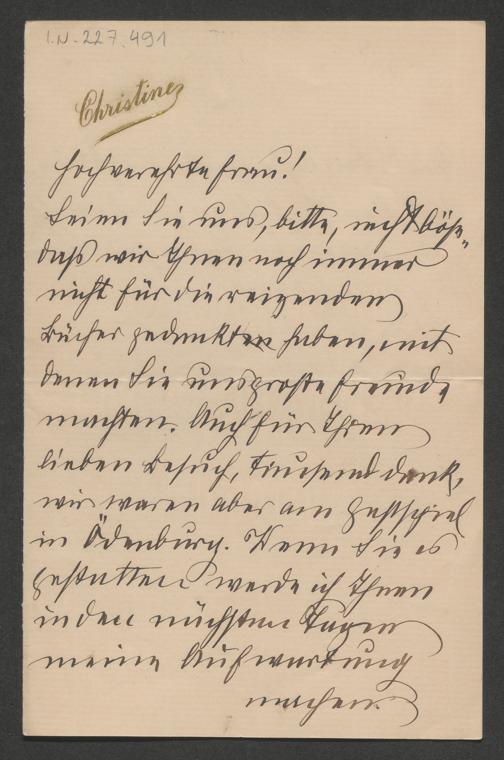 I.N. 227.491
Christine
Hochverehrte Frau!
Seien Sie uns, bitte, nicht böse,
daß wir Ihnen noch immer
nicht für die reizenden
Bücher gedankten haben, mit
denen Sie uns große Freude
machten. Auch für Ihren
lieben Besuch, tausend dank,
wir waren aber am Gastspiel
in Ödenburg. Wenn Sie es
gestatten werde ich Ihnen
in den nächsten Tagen
meine Aufwartung
machen.